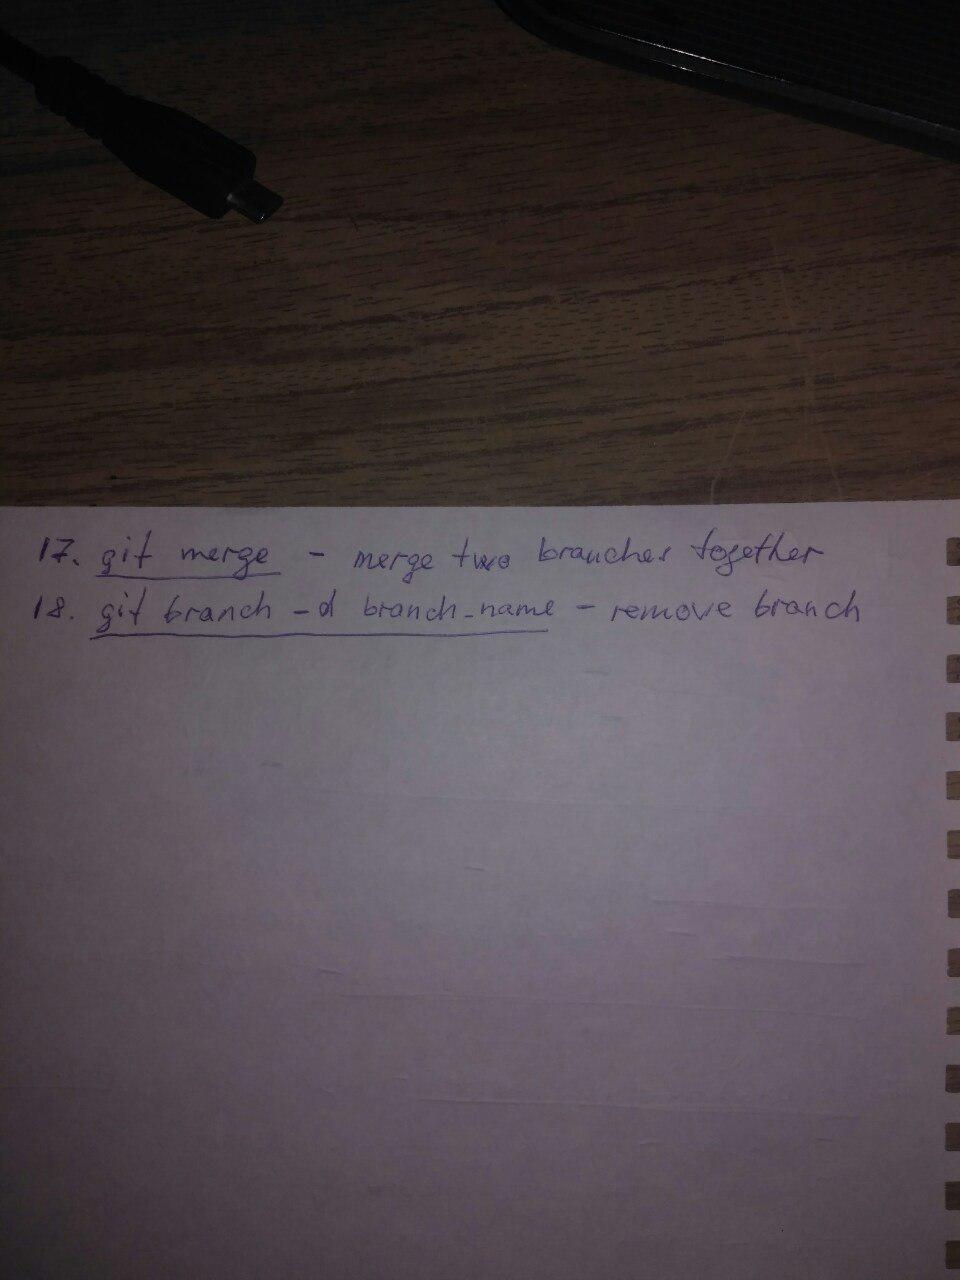 17. git merge - merge two branches together
18. git branch -d branch_name - remove branch